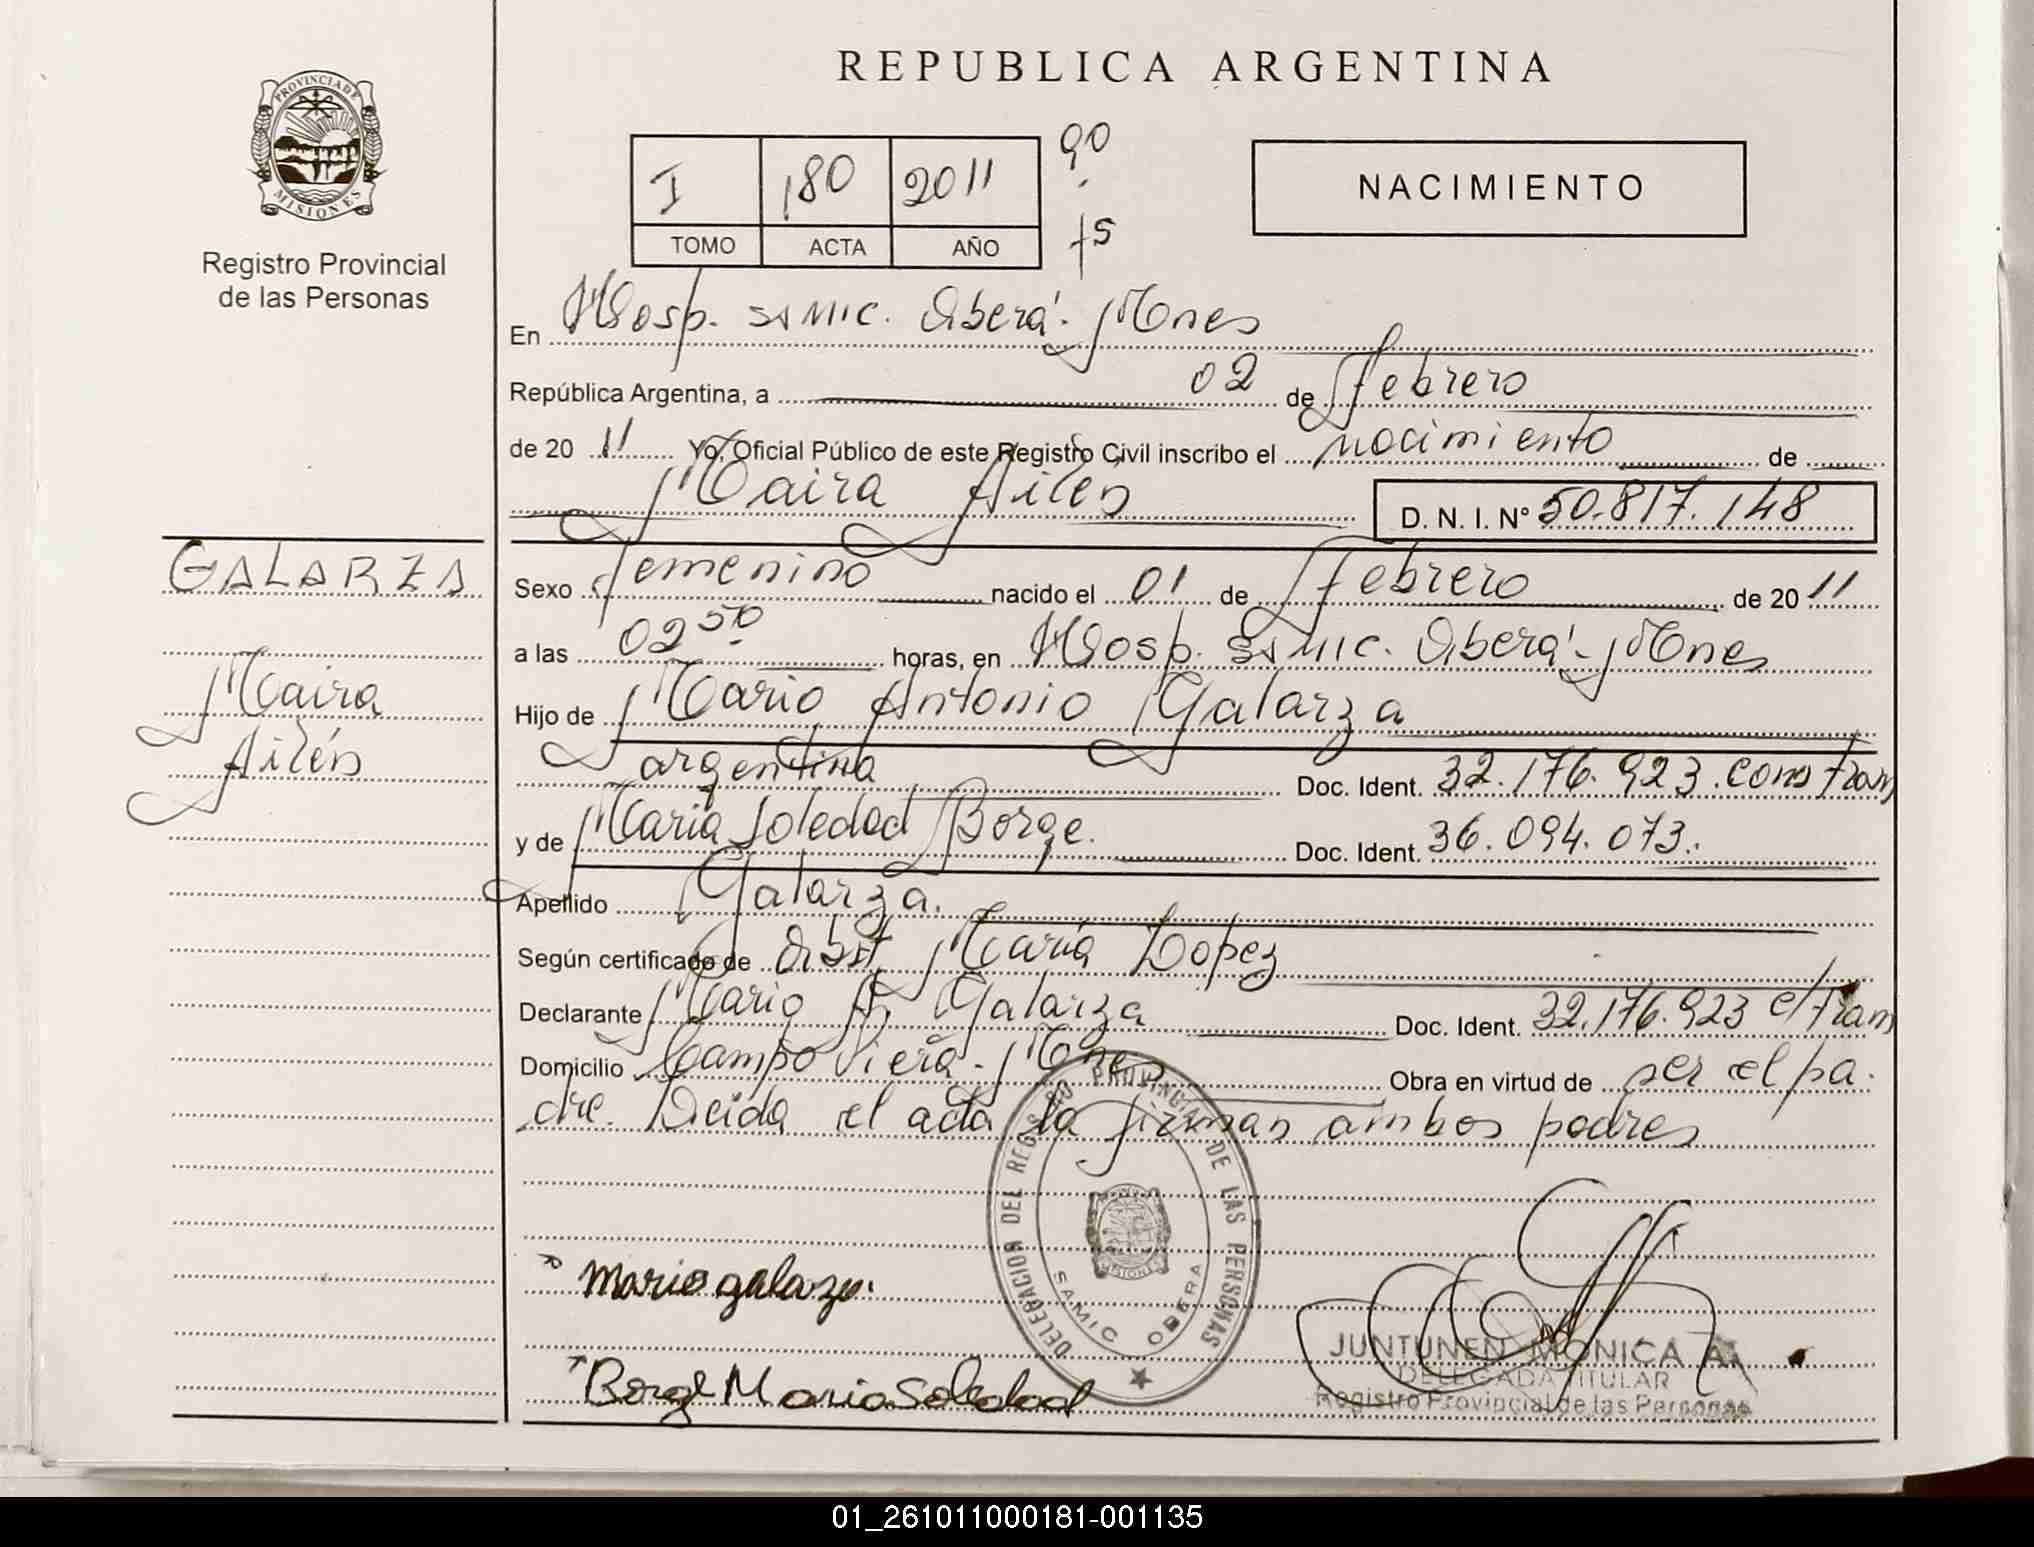 REPUBLICA ARGENTINA
PROVINCIA DE
MISIONES
Registro Provincial
de las Personas
I 180 2011 90
TOMO ACTA AÑO fs
NACIMIENTO
En Hosp. SAMIC. Oberá - Mnes
República Argentina, a 02 de febrero
de 20 11 Yo, Oficial Público de este Registro Civil inscribo el nacimiento de
Maira Ailén D. N. I. Nº 50.817.148
GALARZA
Maira
Ailén
Sexo femenino nacido el 01 de febrero de 20 11
a las 02 50 horas, en Hosp. SAMIC. Oberá - Mnes
Hijo de Mario Antonio Galarza
argentina Doc. Ident. 32.176.923. cons tram
y de Maria Soledad Borge. Doc. Ident. 36.094.073.
Apellido Galarza.
Según certificado de Obst María Lopez
Declarante Mario A. Galarza Doc. Ident. 32.176.923 c/tram
Domicilio Campo Viera - Mnes Obra en virtud de ser el pa.
dre. Leida el acta la firman ambos padres
DELEGACION DEL REGISTRO PROVINCIAL DE LAS PERSONAS
MISIONES
SAMIC OBERA
Mario galarza.
Borge Maria Soledad
JUNTUNEN MONICA A.
DELEGADA TITULAR
Registro Provincial de las Personas
01_261011000181-001135